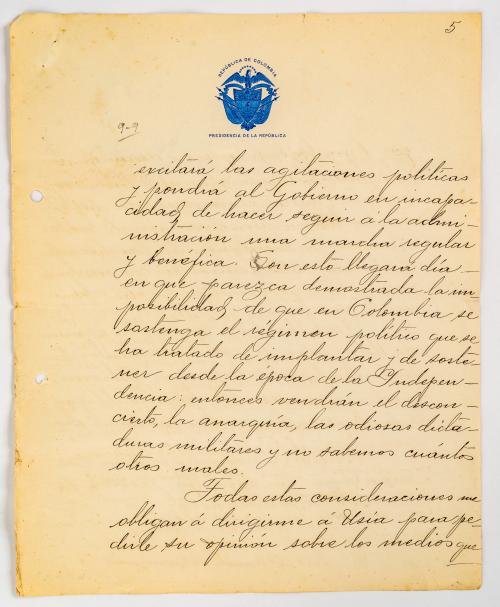 5
REPÚBLICA DE COLOMBIA
PRESIDENCIA DE LA REPÚBLICA
9-9
excitará las agitaciones políticas
y pondrá al Gobierno en incapa-
cidad de hacer seguir á la admi-
nistración una marcha regular
y benéfica. Con esto llegara día
en que parezca demostrada la im-
posibilidad de que en Colombia se
sostenga el régimen político que se
ha tratado de implantar y de soste-
ner desde la época de la Indepen-
dencia: entonces vendrán el descon-
cierto, la anarquía, las odiosas dicta-
duras militares y no sabemos cuántos
otros males.
Todas estas consideraciones me
obligan á dirigirme á Usía para pe-
dirle su opinión sobre los medios que